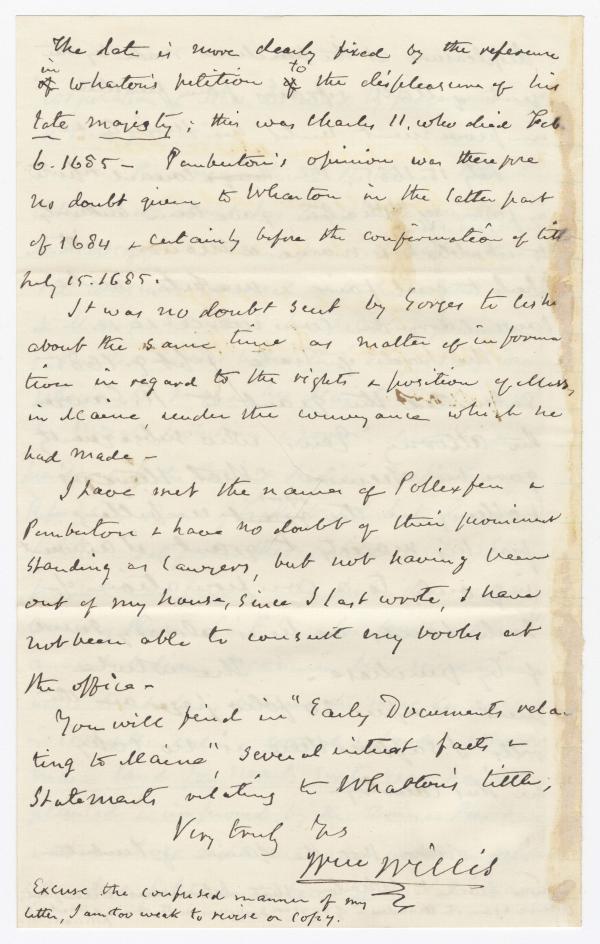 The date is more clearly fixed by the reference
in Wharton's petition to the displeasure of his
late majesty; this was Charles II, who died Feb
6. 1685 - Pemberton's opinion was therefore
no doubt given to Wharton in the latter part
of 1684 & certainly before the confirmation of titl
July 15. 1685.
It was no doubt sent by Gorges to
about the same time as matter of informa
tion in regard to the rights & position of Mass,
in Maine, under the conveyance which he
had made -
I have met the names of Pollexfen &
Pemberton & have no doubt of their prominent
standing as lawyers, but not having been
out of my house, since I last wrote, I have
not been able to consult my books at
the office -
You will find in "Early Documents rela-
ting to Maine", several interest facts &
Statements relating to Wharton's title,
Very truly Yrs
Wm Willis
Excuse the confused manner of my
letter, I am too weak to revise or copy.